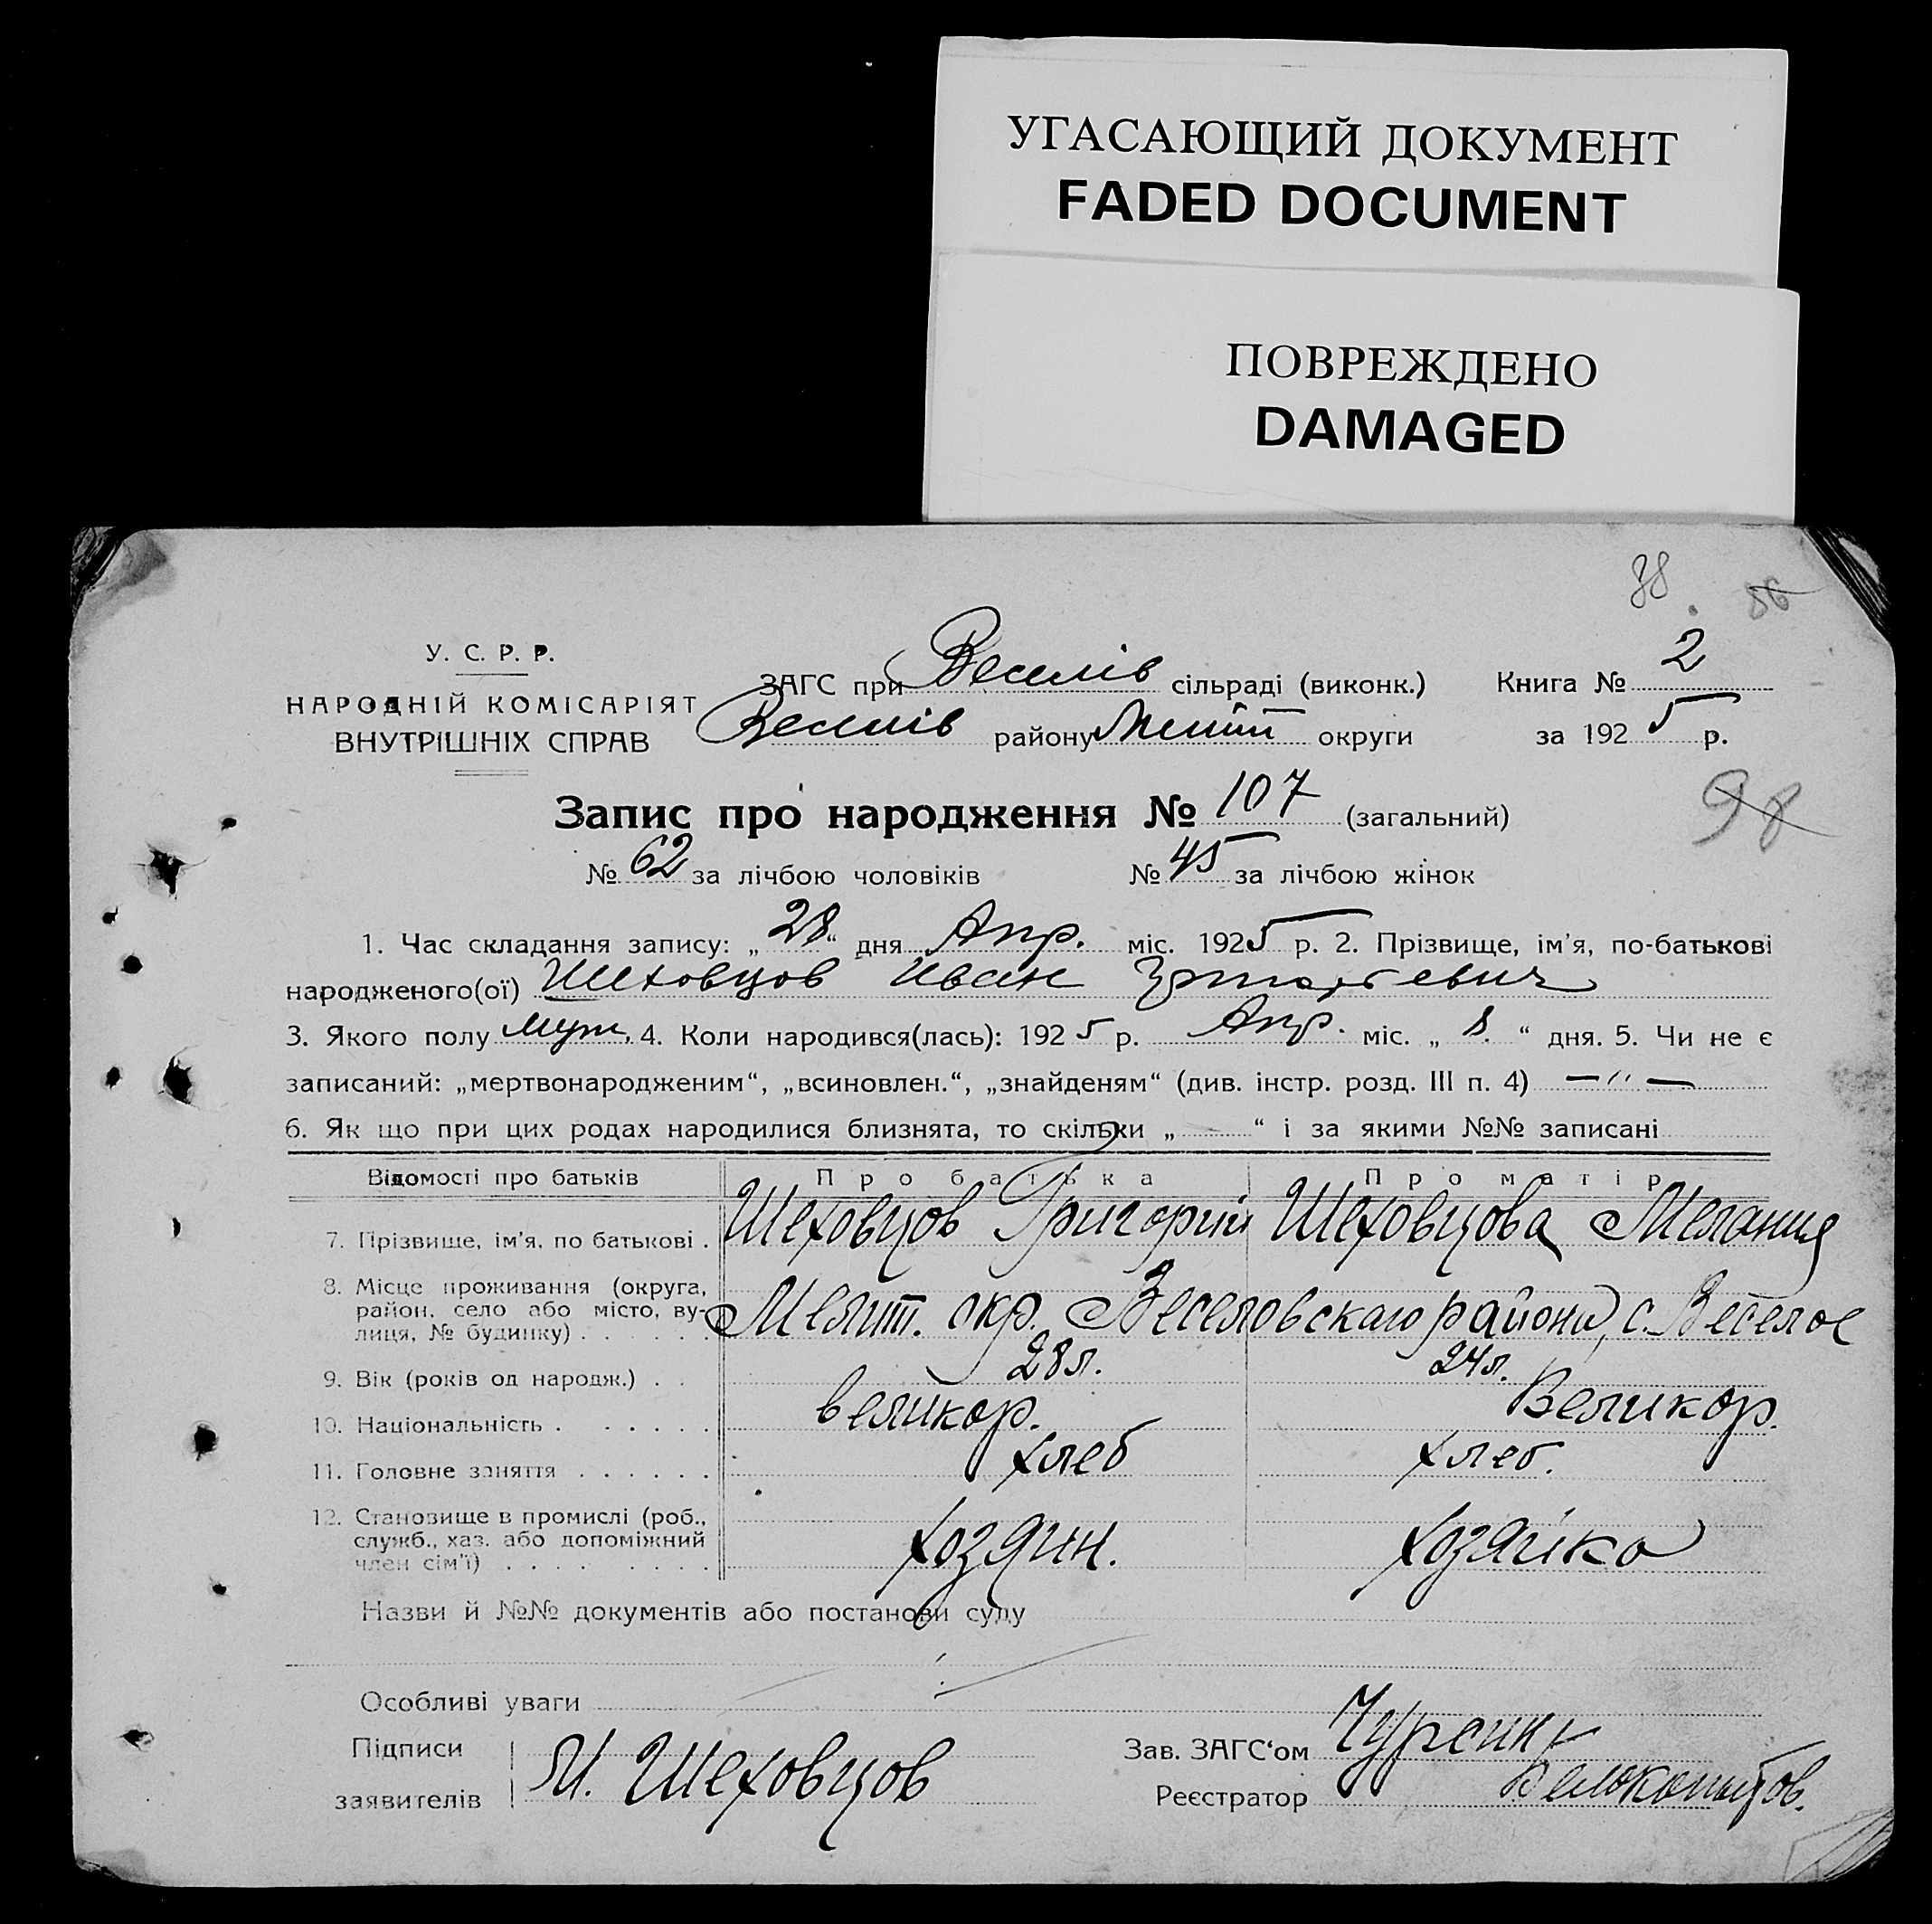 УГАСАЮЩИЙ ДОКУМЕНТ
FADED DOCUMENT
ПОВРЕЖДЕНО
DAMAGED
38 86
У. С. Р. Р.
НАРОДНІЙ КОМІСАРІЯТ
ВНУТРІШНІХ СПРАВ
ЗАГС при Веселів сільраді (виконк.) Книга № 2
Веселів району Меліт округи за 1925 р.
98
Запис про народження № 107 (загальний)
№ 62 за лічбою чоловіків № 45 за лічбою жінок
1. Час складання запису: „28“ дня Апр. міс. 1925 р. 2. Прізвище, ім'я, по-батькові
народженого(ої) Шеховцов Иван
3. Якого полу муж. 4. Коли народився(лась): 1925 р. Апр. міс. „ 8. “ дня. 5. Чи не є
записаний: „мертвонародженим“, „всиновлен.“, „знайденям“ (див. інстр. розд. III п. 4) — " —
6. Як що при цих родах народилися близнята, то скільки „ — “ і за якими №№ записані
Відомості про батьків Про батька Про матір
7. Прізвище, ім'я, по батькові . Шеховцов Григорий Шеховцова Мелания
8. Місце проживання (округа, район, село або місто, вулиця, № будинку) . . . . . . Мелит. окр. Веселовскаго района, с. Веселое
9. Вік (років од народж.) . . 28 л. 24 л.
10. Національність . . . . . . великор. Великор.
11. Головне заняття . . . . . . хлеб хлеб.
12. Становище в промислі (роб., служб., хаз. або допоміжний член сім'ї) . . . . . . . . хозяин. хозяйка
Назви й №№ документів або постанови суду
Особливі уваги
Підписи заявителів И. Шеховцов
Зав. ЗАГС‘ом Чурсин
Реєстратор Белокопытов.